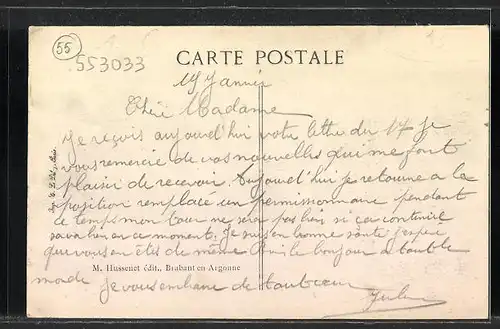 55
553033
CARTE POSTALE
19 Janvier
Chère Madame
Je reçois aujourd'hui votre lettre du 17 Je
vous remercie de vos nouvelles qui me font
plaisir de recevoir. Aujourd'hui je retourne a la
position remplacé un permissionnaire pendant
ce temps mon tour ne sera pas bien si ça continue
sava bien en ce moment. Je suis en bonne santé j'espère
que vous en êtes de même le bonjour a tout le
M. Hussenet édit., Brabant en Argonne
monde Je vous embrasse de tout cœur
Jules